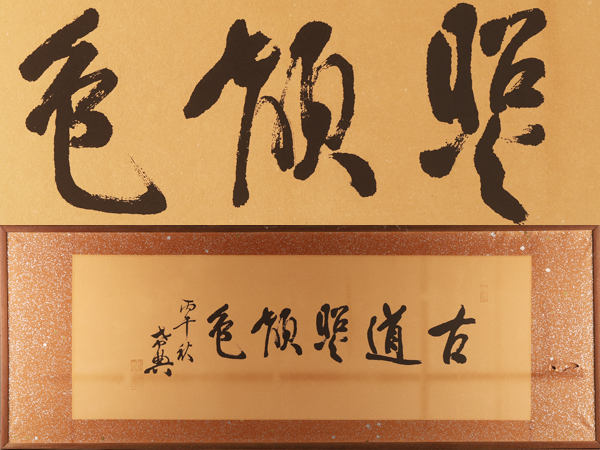 照顔色
古道照顔色
丙午秋
希典